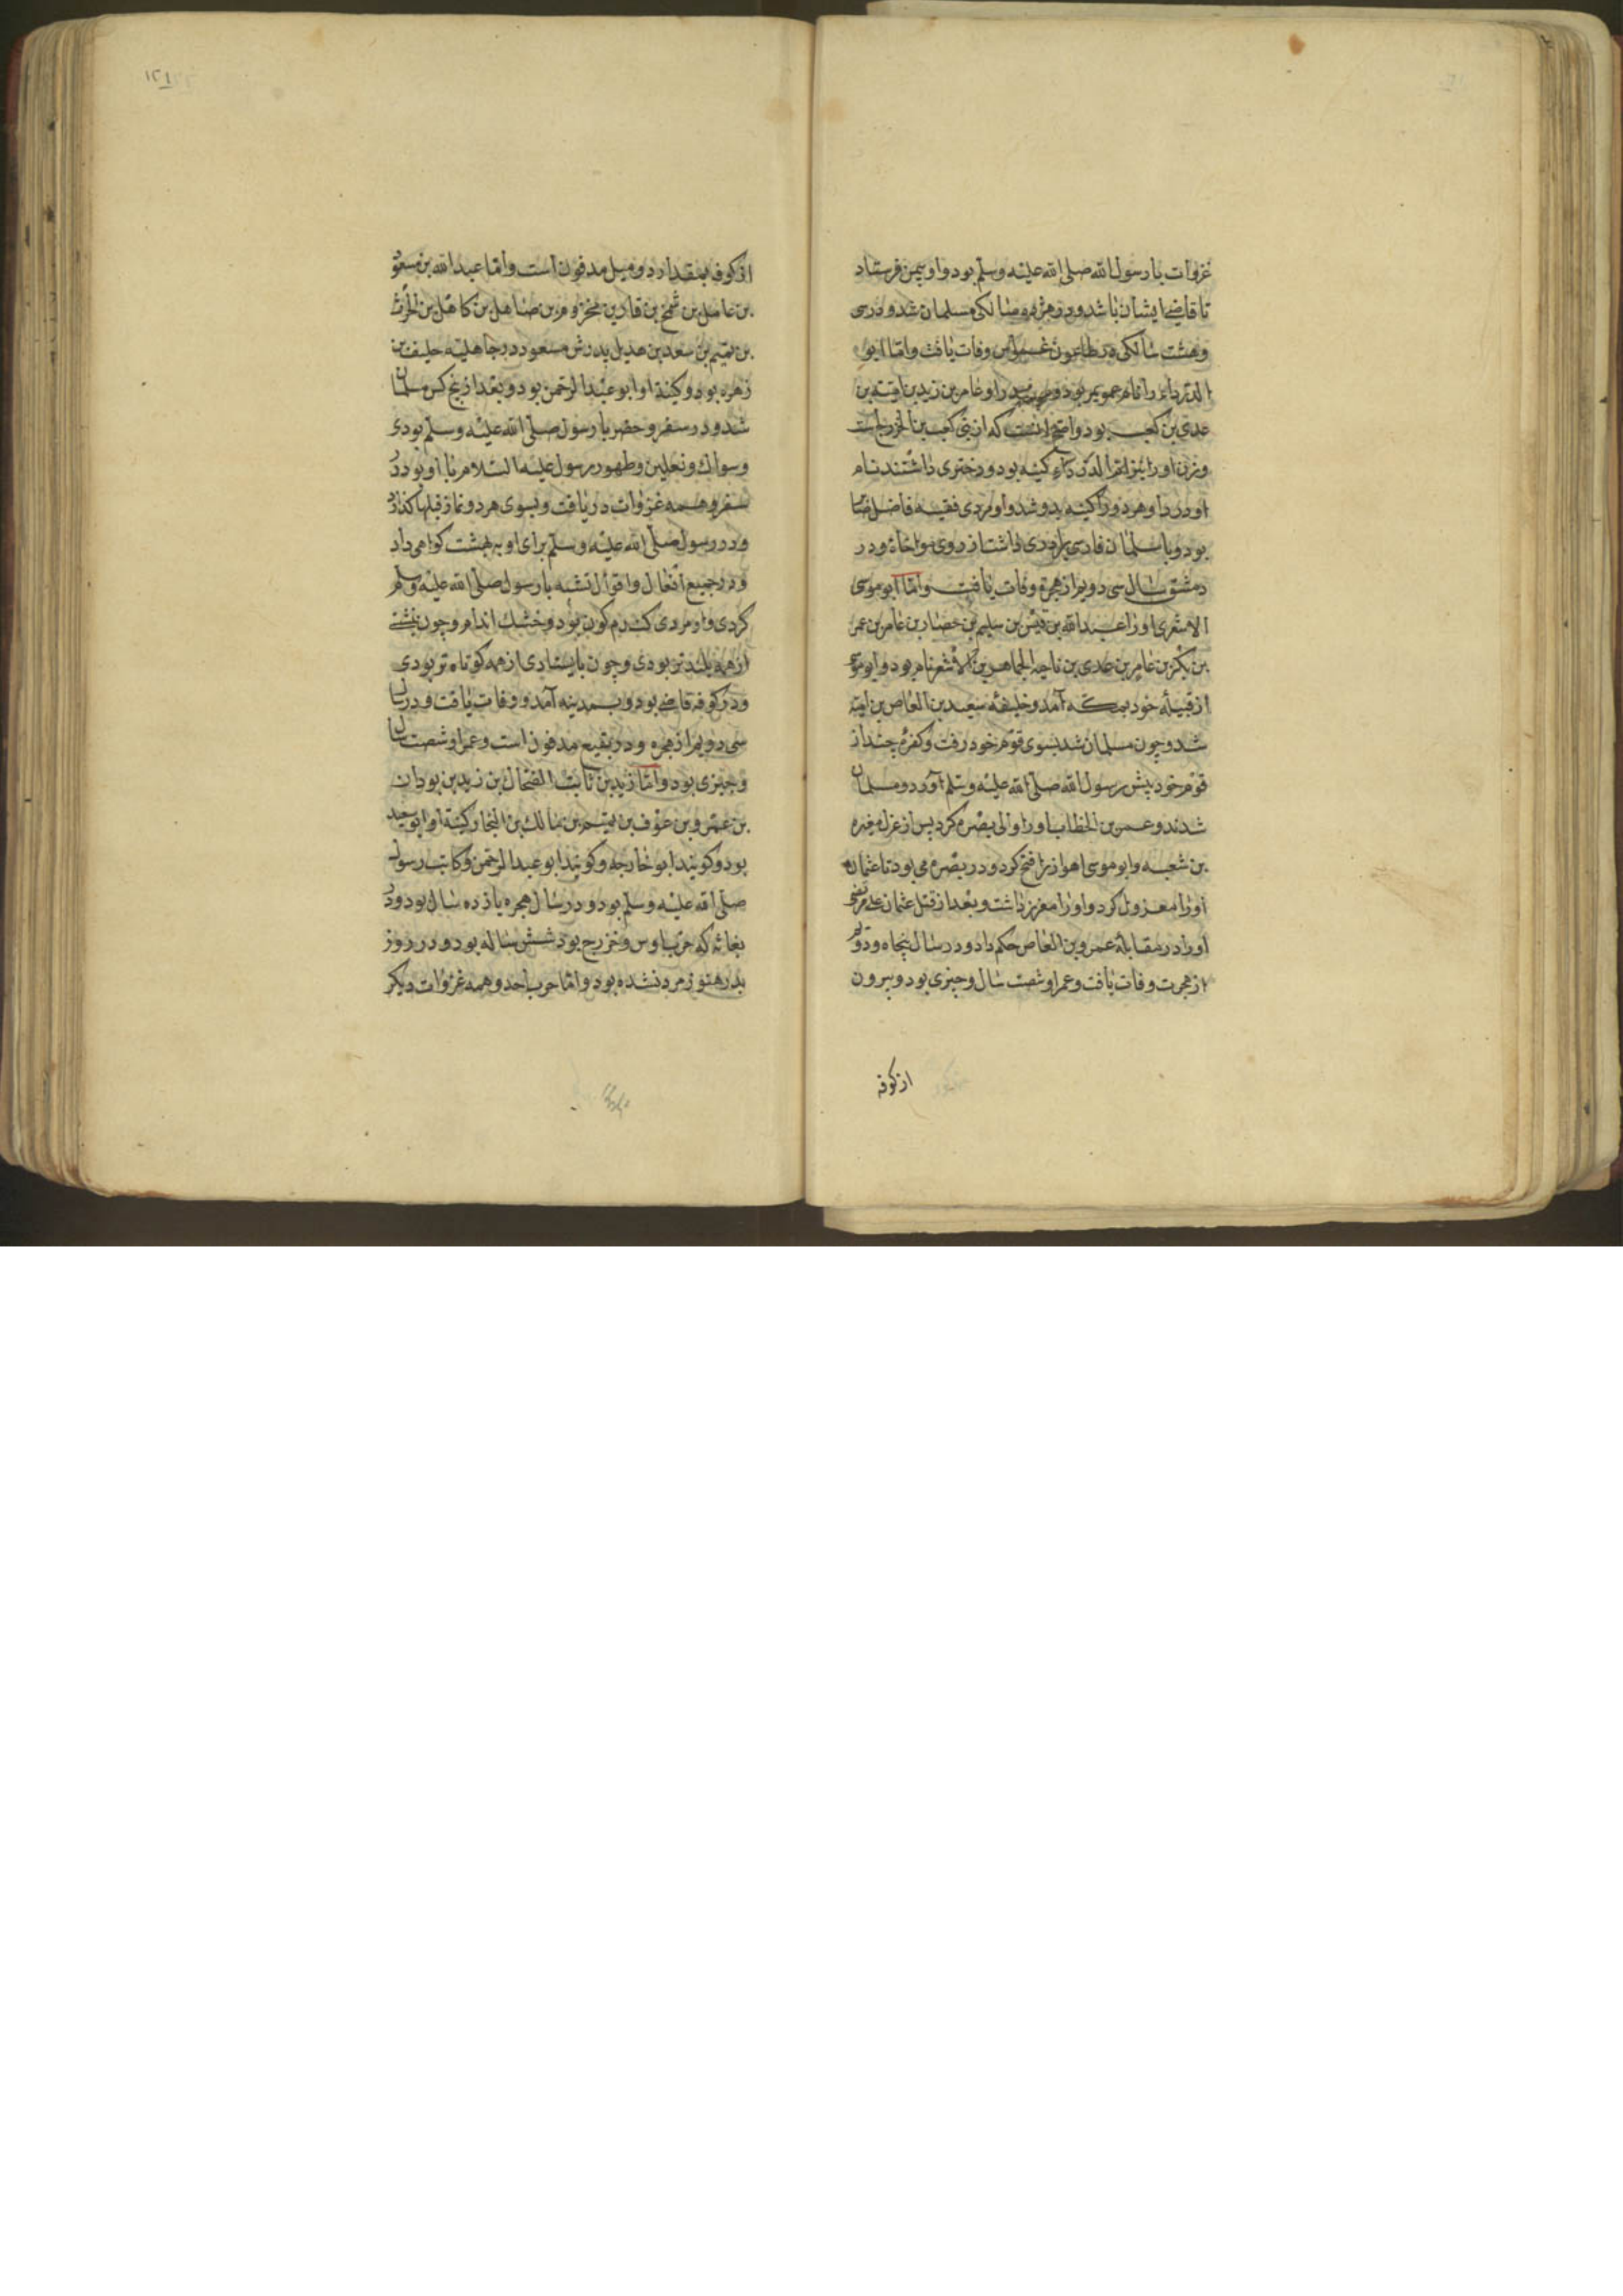 غزوات با رسول الله صلی الله علیه وسلم بود واو بیمن فرستاد
تا قاضی ایشان باشد ودر هژده سالکی مسلمان شد ودر سی
وهشت سالکی در طاعون عمواس وفات یافت واما ابو
الدرداء را نام عویمر بود و پدر او عامر بن زید بن امیة بن
عدی بن کعب بود واصح انست که از بنی کعب بن الخزرج است
وزن اورا نیز ام الدرداء کنیه بود ودختری داشتند نام
او دردا وهر دو را کنیه بدو شد واو مردی فقیه فاضل
بود وبا سلمان فارسی برادری داشت از روی مواخاة ودر
دمشق سال سی دویم از هجرة وفات یافت واما ابو موسی
الاشعری او را عبدالله بن قیس بن سلیم بن حضار بن عامر بن عمر
بن بکر بن عامر بن عدی بن ناجیه الجماهر بن الاشعر نام بود وابو موسی
از قبیلهٔ خود بمکه آمد وحلیف سعید بن العاص بن امیه
شد وچون مسلمان شد بسوی قوم خود رفت وکفرهٔ چند از
قوم خود پیش رسول الله صلی الله علیه وسلم آورد ومسلمان
شدند وعمر بن الخطاب او را والی بصره کرد پس از عزل مغیره
بن شعبه وابو موسی اهواز را فتح کرد ودر بصره می بود تا عثمان
اورا معزول کرد واورا معزز داشت وبعد از قتل عثمان علی مرتضی
اورا در مقابلهٔ عمرو بن العاص حکم داد ودر سال پنجاه ودویم
از هجرت وفات یافت وعمر او شصت سال وچیزی بود وبیرون
از کوفه
۱۲۱
از کوفه بمقدار دو میل مدفون است واما عبدالله بن مسعود
بن غافل بن شمخ بن فار بن مخزوم بن صاهل بن کاهل بن الحرث
بن تمیم بن سعد بن هذیل پدرش مسعود در جاهلیه حلیف بن
زهره بود وکنیة او ابو عبدالرحمن بود وبعد از پنج کس مسلمان
شد ودر سفر وحضر با رسول صلی الله علیه وسلم بودی
وسواک ونعلین وطهور رسول علیه السلام با او بود در
سفر وهمه غزوات دریافت وبسوی هر دو نماز قبلها کذارد
ودر رسول صلی الله علیه وسلم برای او به بهشت کواهی داد
ودر جمیع افعال واقوال تشبه با رسول صلی الله علیه وسلم
کردی واو مردی کندم کون بود وخشک اندام وچون بنشستی
از همه بلندتر بودی وچون بایستادی از همه کوتاه تر بودی
ودر کوفه قاضی بود وبمدینه آمد ووفات یافت ودر سال
سی دویم از هجره ودر بقیع مدفون است وعمر او شصت سال
وچیزی بود واما زید بن ثابت الضحاک بن زید بن بودان
بن عمرو بن عوف بن بن مالک بن النجار کنیة او ابو سعید
بود وکویند ابو خارجه وکویند ابو عبدالرحمن وکاتب رسول
صلی الله علیه وسلم بود ودر سال هجره یازده سال بود ودر
بغاثه که حرب اوس وخزرج بود شش ساله بود ودر روز
بدر هنوز مرد نشده بود واما حرب احد وهمه غزوات دیکر